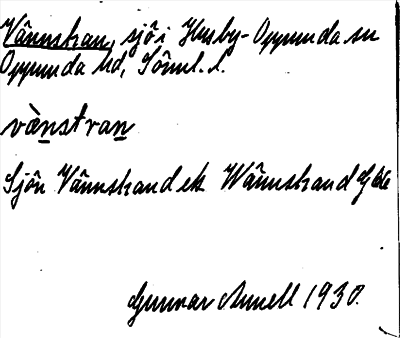 Vännstran, sjö i Husby-Oppunda sn
Oppunda hd, Söml. l.
vä̀nstran
Sjön Vännstrand ek Wännstrand GEK
Gunnar Annell 1930.